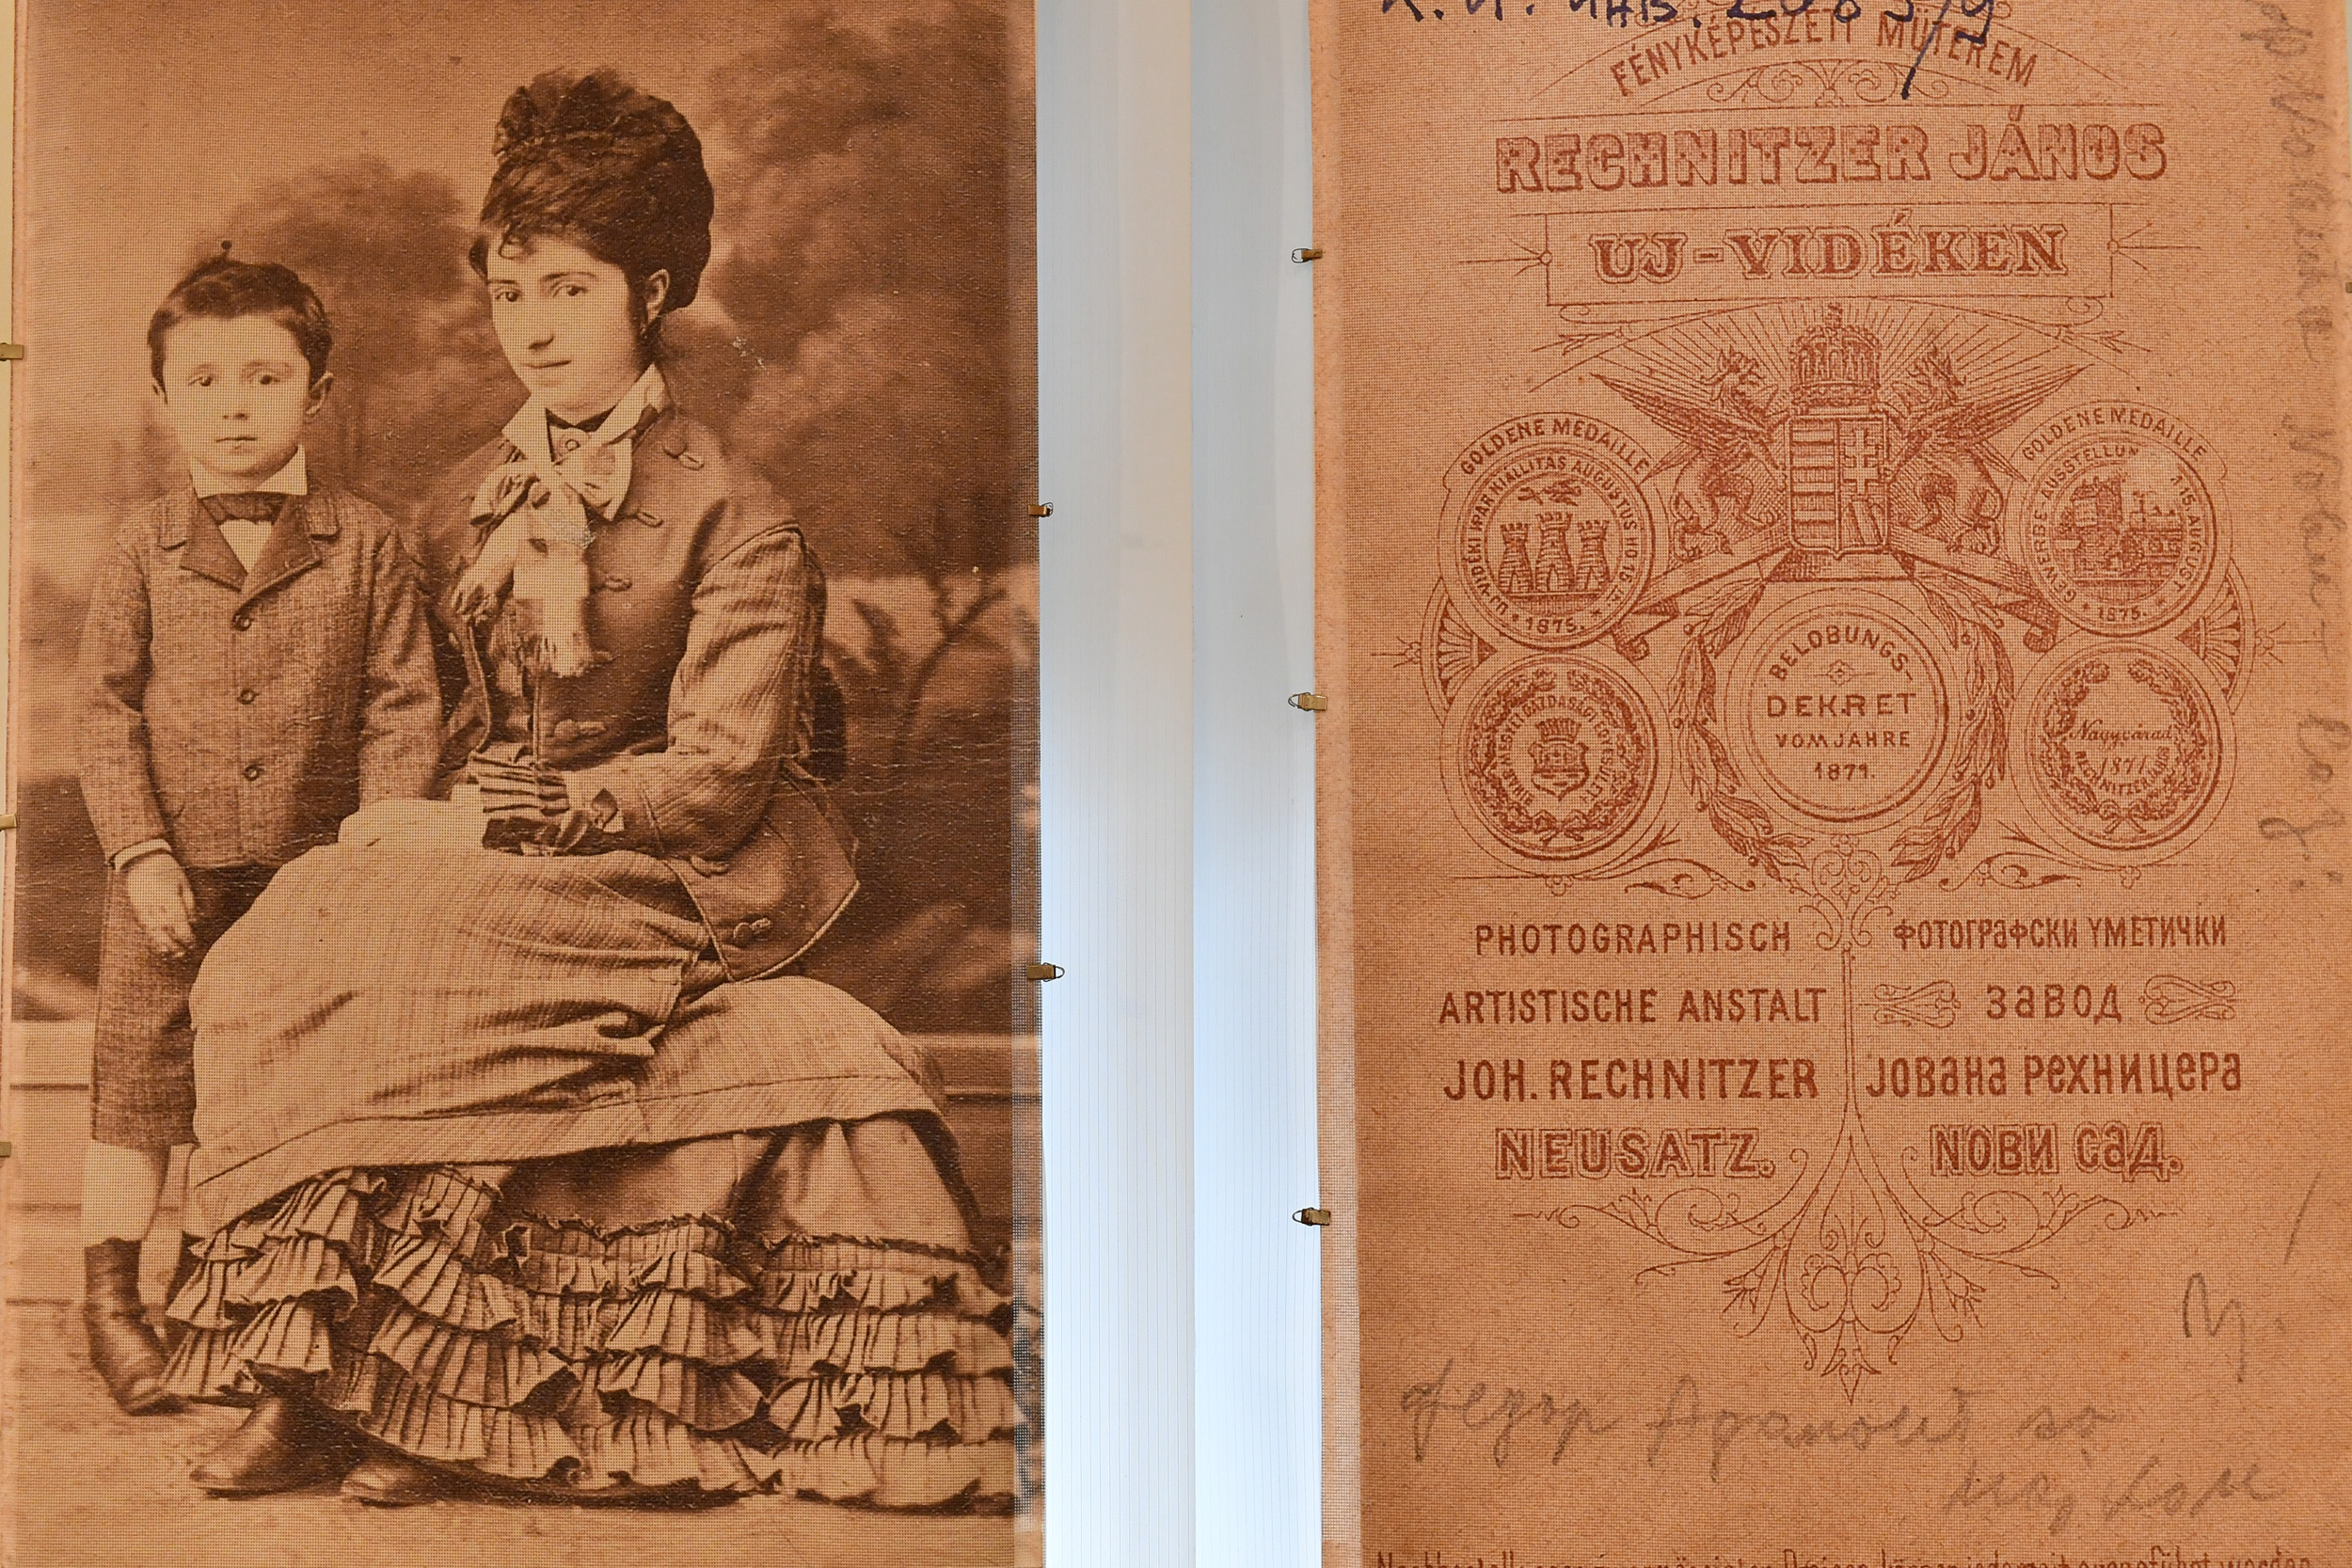 К. И. ИНВ. 2083/9
FÉNYKÉPÉSZETI MŰTEREM
RECHNITZER JÁNOS
UJ-VIDÉKEN
GOLDENE MEDAILLE
UJ-VIDÉKI IPARKIÁLLITÁS AUGUSTUS HO 15.
1875.
GOLDENE MEDAILLE
GEWERBE-AUSSTELLUNG 15. AUGUST.
1875.
BELOBUNGS-
DEKRET
VOM JAHRE
1871.
Nagyvárad
1871
RECHNITZER JÁNOS
PHOTOGRAPHISCH
ARTISTISCHE ANSTALT
JOH. RECHNITZER
NEUSATZ.
ФОТОГРАФСКИ УМЕТИЧКИ
ЗАВОД
ЈОВАНА РЕХНИЦЕРА
НОВИ САД.
Федор Адамовић са
мајком